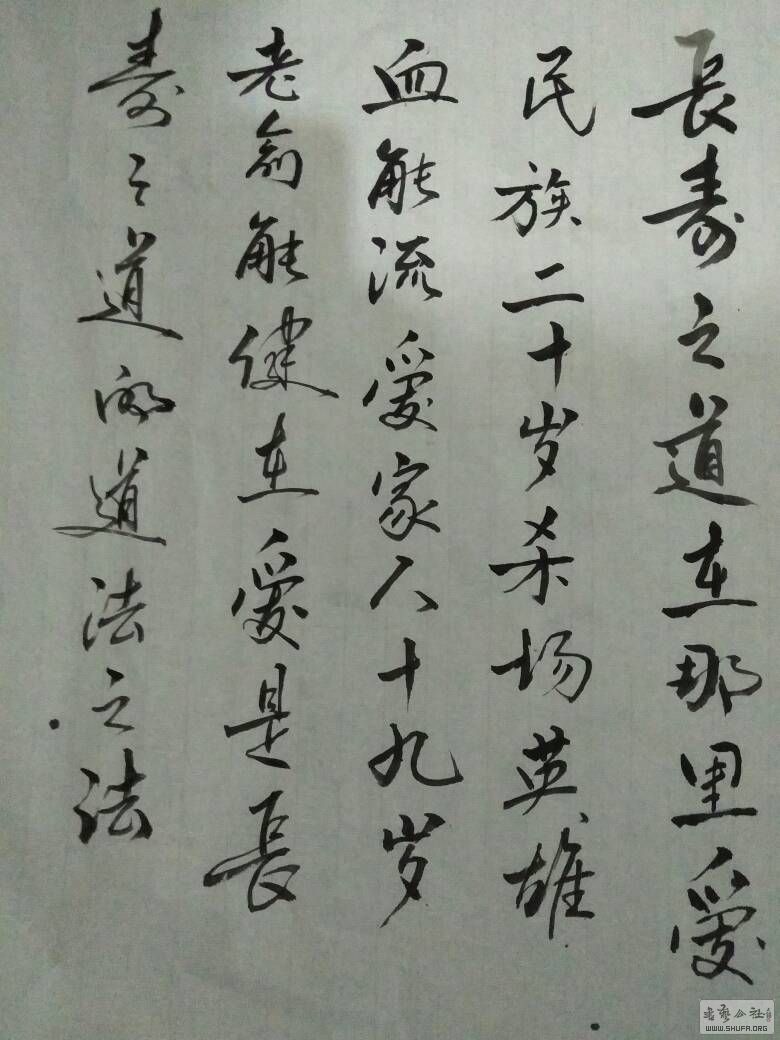 長寿之道在那里愛
民族二十岁杀场英雄
血能流愛家八十九岁
老翁能健在愛是長
寿之道的道法之法
书艺公社
WWW.SHUFA.ORG